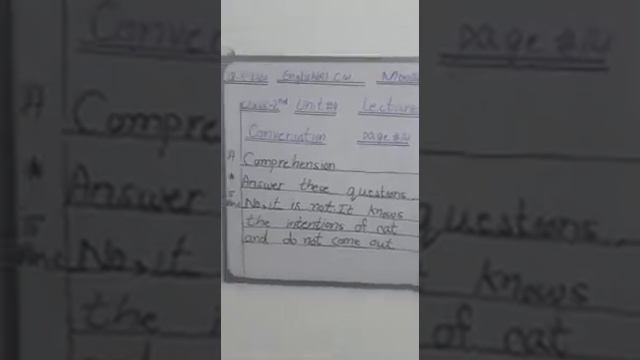 English C.W
Class-2nd Unit #9 Lecture
Conversation Page #
A Comprehension
* Answer these questions
5
Ans No, it is not. It knows
the intentions of cat
and do not come out